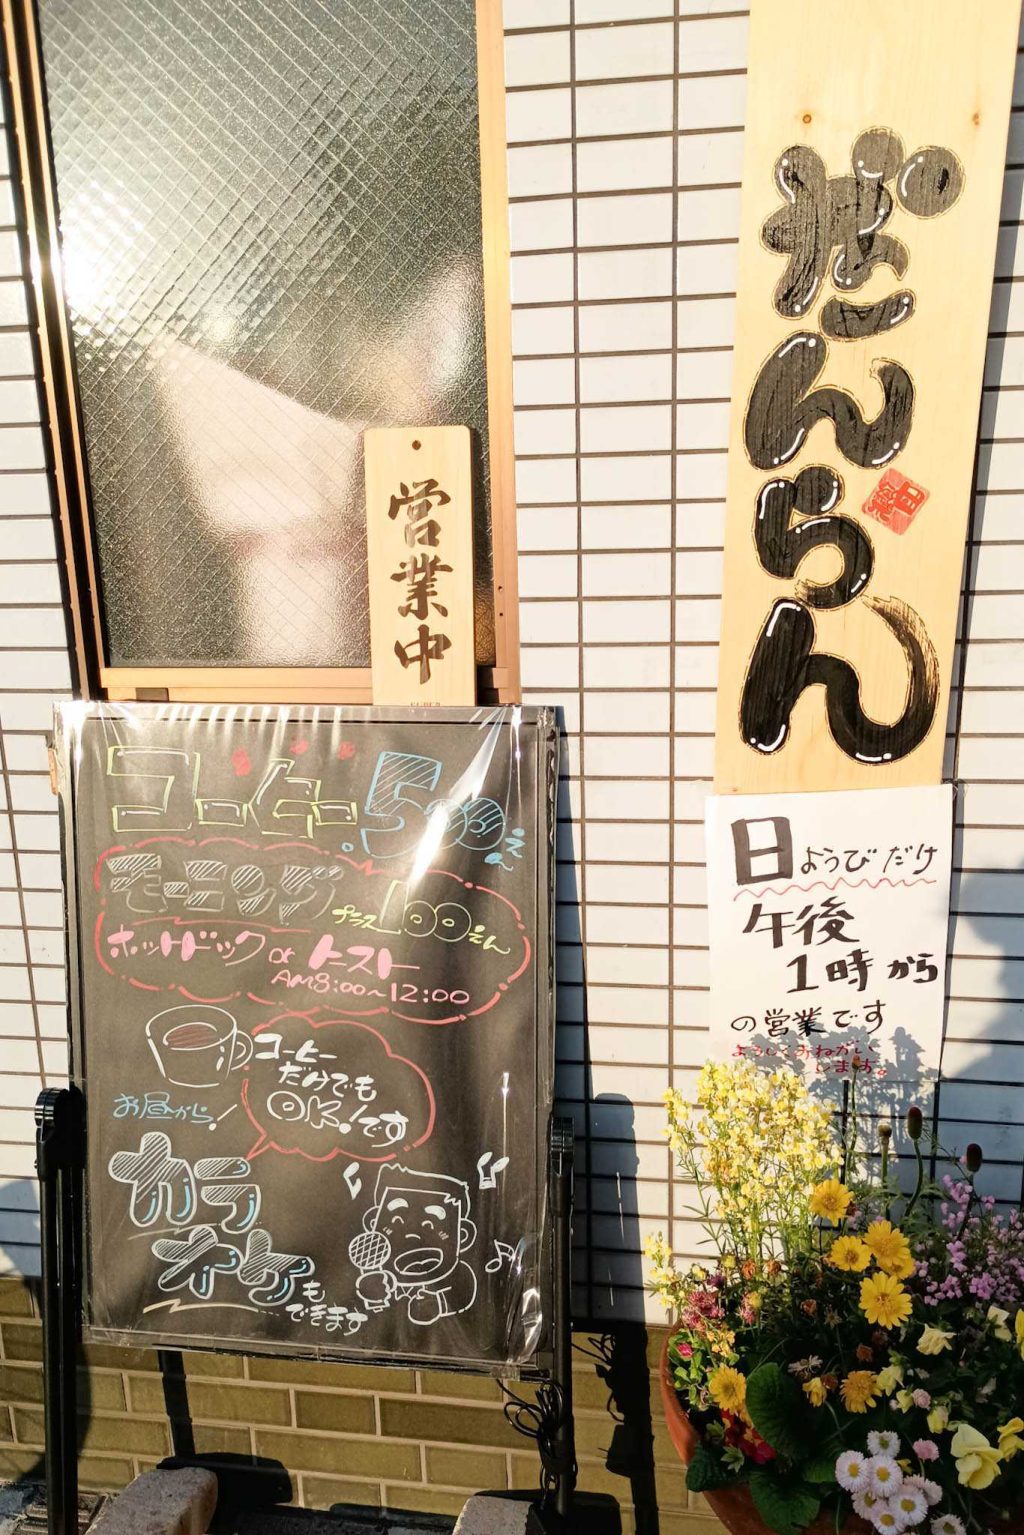 だんらん
営業中
コーヒー500えん
モーニング プラス100えん
ホットドック or トースト
AM8:00~12:00
コーヒー
だけでも
OK!です
お昼から!
カラ
オケも
できます
日ようびだけ
午後
1時から
の営業です
よろしくおねがい
します。